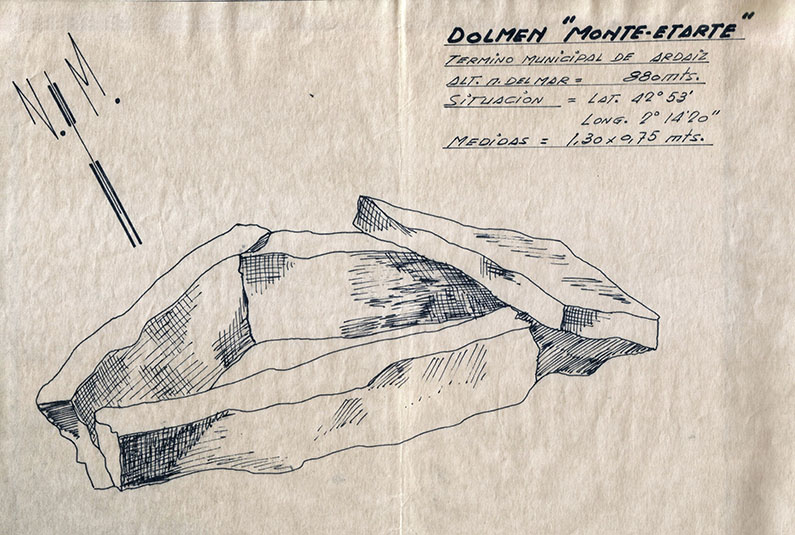 DOLMEN "MONTE-ETARTE"
TERMINO MUNICIPAL DE ARDAIZ
ALT. n. DEL MAR = 880 mts.
SITUACION = LAT. 42° 53'
LONG. 2° 14'20"
MEDIDAS = 1,30 x 0,75 mts.
N. M.